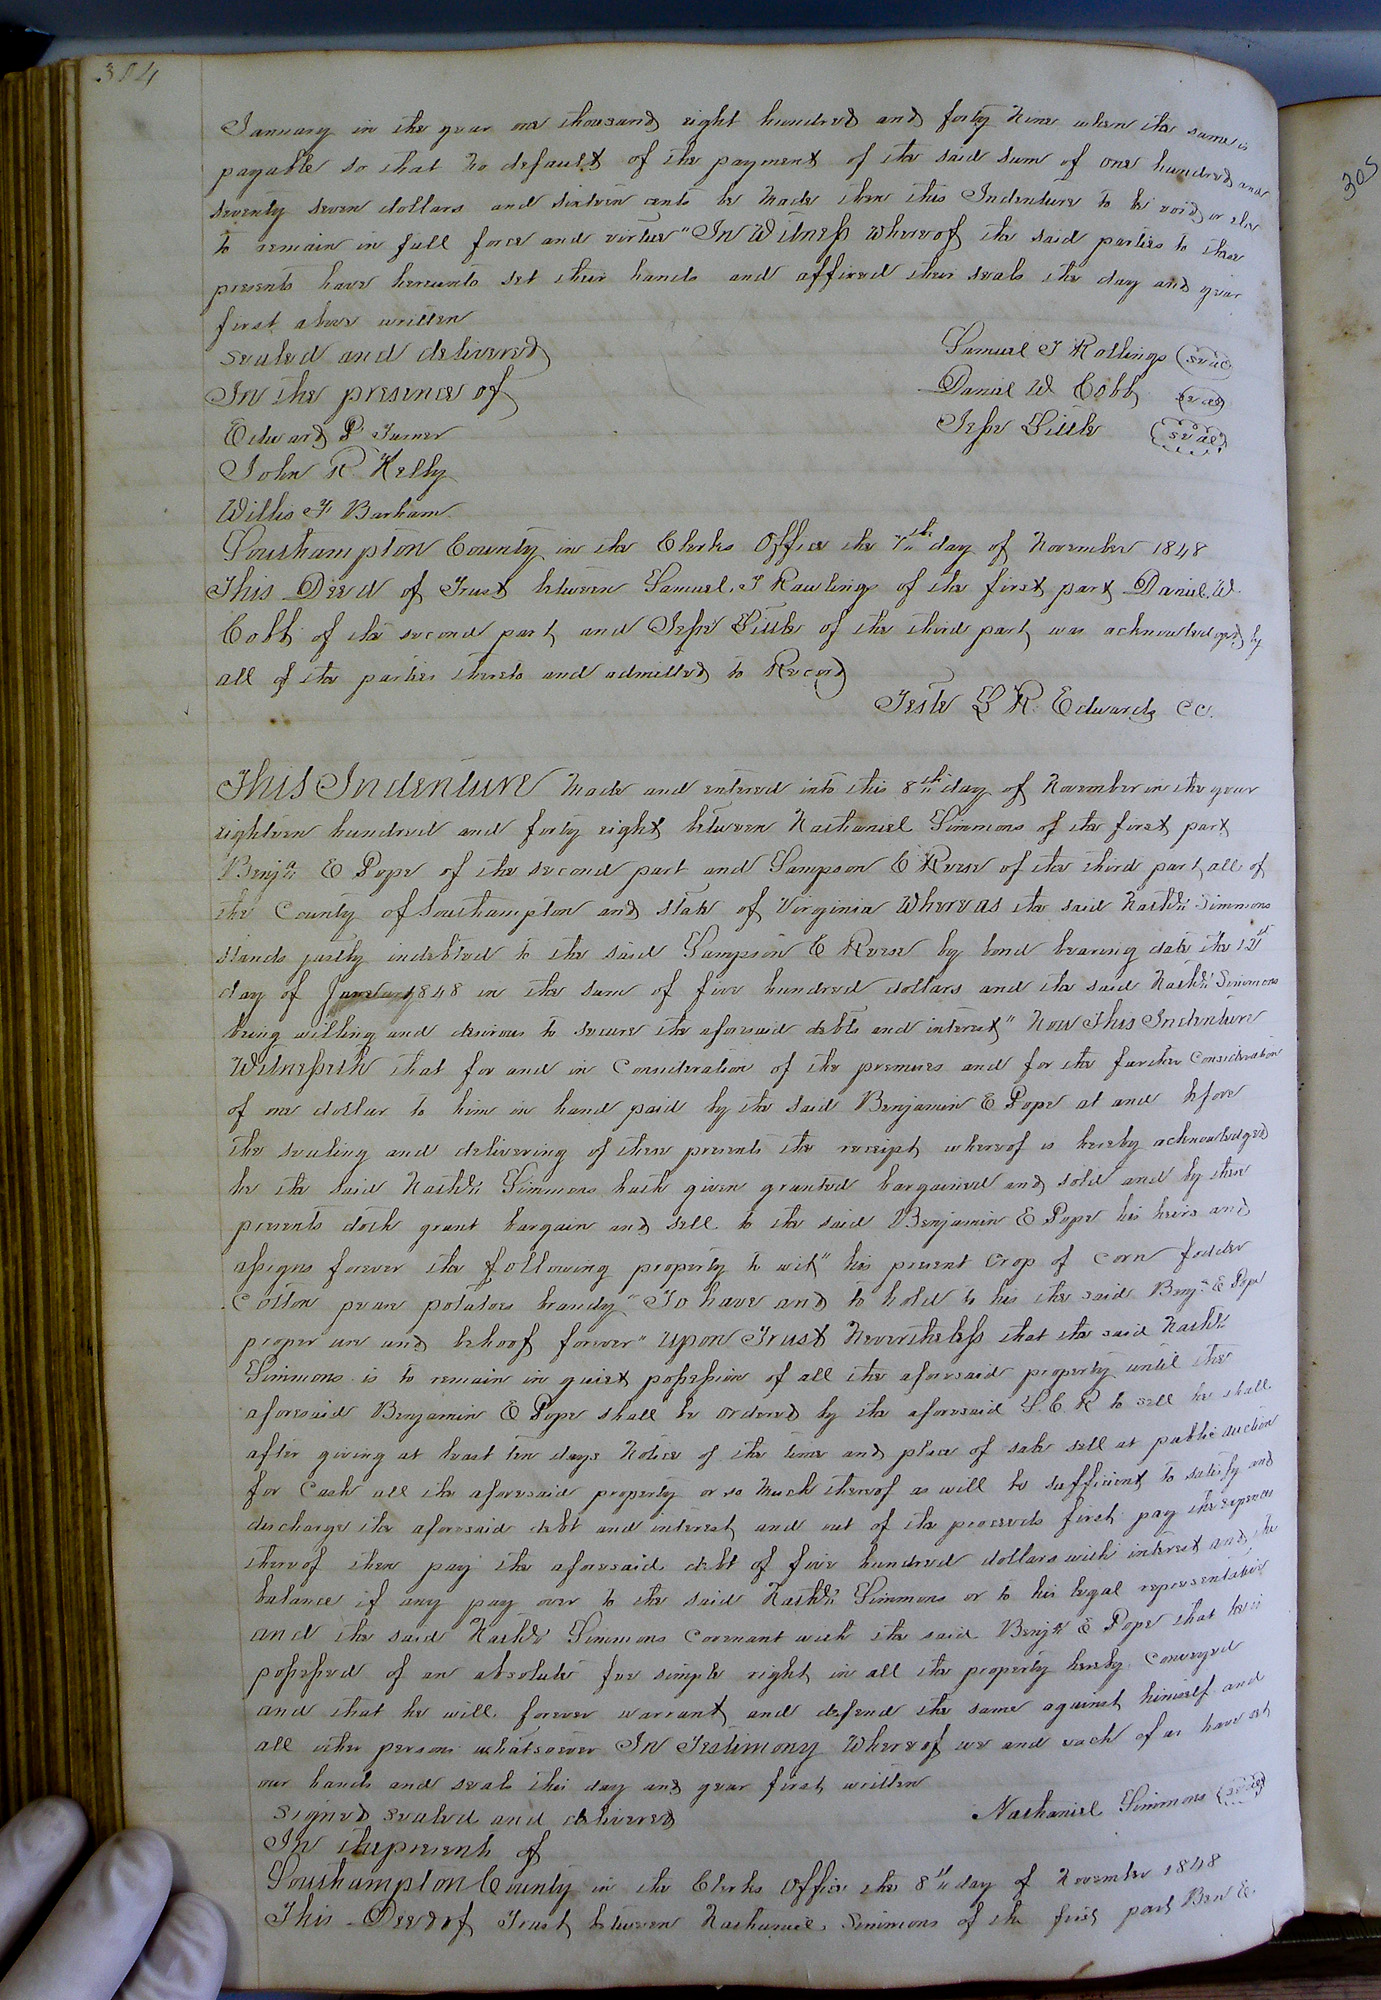 304
305
January in the year one thousand eight hundred and forty Nine when the same is
payable so that No default of the payment of the said sum of one hundred and
seventy seven dollars and sixteen cents be Made then this Indenture to be void or else
to remain in full force and virtue" In Witness whereof the said parties to these
presents have hereunto set their hands and affixed their seals the day and year
first above written
Sealed and delivered Samuel J Rollings (seal)
In the presence of Daniel W Cobb (seal)
Edward P Turner Jesse Little (seal)
John R Kelly
Willis F Barham
Southampton County in the Clerks Office the 7th day of November 1848
This Deed of Trust between Samuel J Rawlings of the first part Daniel W
Cobb of the second part and Jesse Little of the third part was acknowledged by
all of the parties thereto and admitted to Record
Teste L R Edwards CC.
This Indenture Made and entered into this 8th day of November in the year
eighteen hundred and forty eight between Nathaniel Simmons of the first part
Benjn E Pope of the second part and Sampson C Reese of the third part all of
the County of Southampton and State of Virginia Whereas the said Nathl Simmons
stands justly indebted to the said Sampson C Reese by bond bearing date the 1st
day of 1848 in the sum of five hundred dollars and the said Nathl Simmons
being willing and desirous to secure the aforesaid debts and interest" Now This Indenture
Witnesseth that for and in Consideration of the premises and for the further Consideration
of one dollar to him in hand paid by the said Benjamin E Pope at and before
the sealing and delivering of these presents the receipt whereof is hereby acknowledged
he the said Nathl Simmons hath given granted bargained and sold and by these
presents doth grant bargain and sell to the said Benjamin E Pope his heirs and
assigns forever the following property to wit" his present Crop of Corn fodder
Cotton pease potatoes brandy" To have and to hold to his the said Benjn E Pope
proper use and behoof forever" Upon Trust Nevertheless that the said Nathl
Simmons is to remain in quiet possession of all the aforesaid property until the
aforesaid Benjamin E Pope shall be ordered by the aforesaid S. C. R to sell he shall
after giving at least ten days Notice of the time and place of sale sell at public auction
for Cash all the aforesaid property or so Much thereof as will be sufficient to satisfy and
discharge the aforesaid debt and interest and out of the proceeds first pay the expences
thereof then pay the aforesaid debt of five hundred dollars with interest and the
balance if any pay over to the said Nathl Simmons or to his legal representative
and the said Nathl Simmons Covenant with the said Benjn E Pope that he is
possessed of an absolute fee simple right in all the property hereby Conveyed
and that he will forever warrant and defend the same against himself and
all other persons whatsoever In Testimony Whereof we and each of us have set
our hands and seals this day and year first written
Signed Sealed and delivered Nathaniel Simmons (seal)
In the presents of
Southampton County in the Clerks Office the 8th day of November 1848
This Deed of Trust between Nathaniel Simmons of the first part Ben E